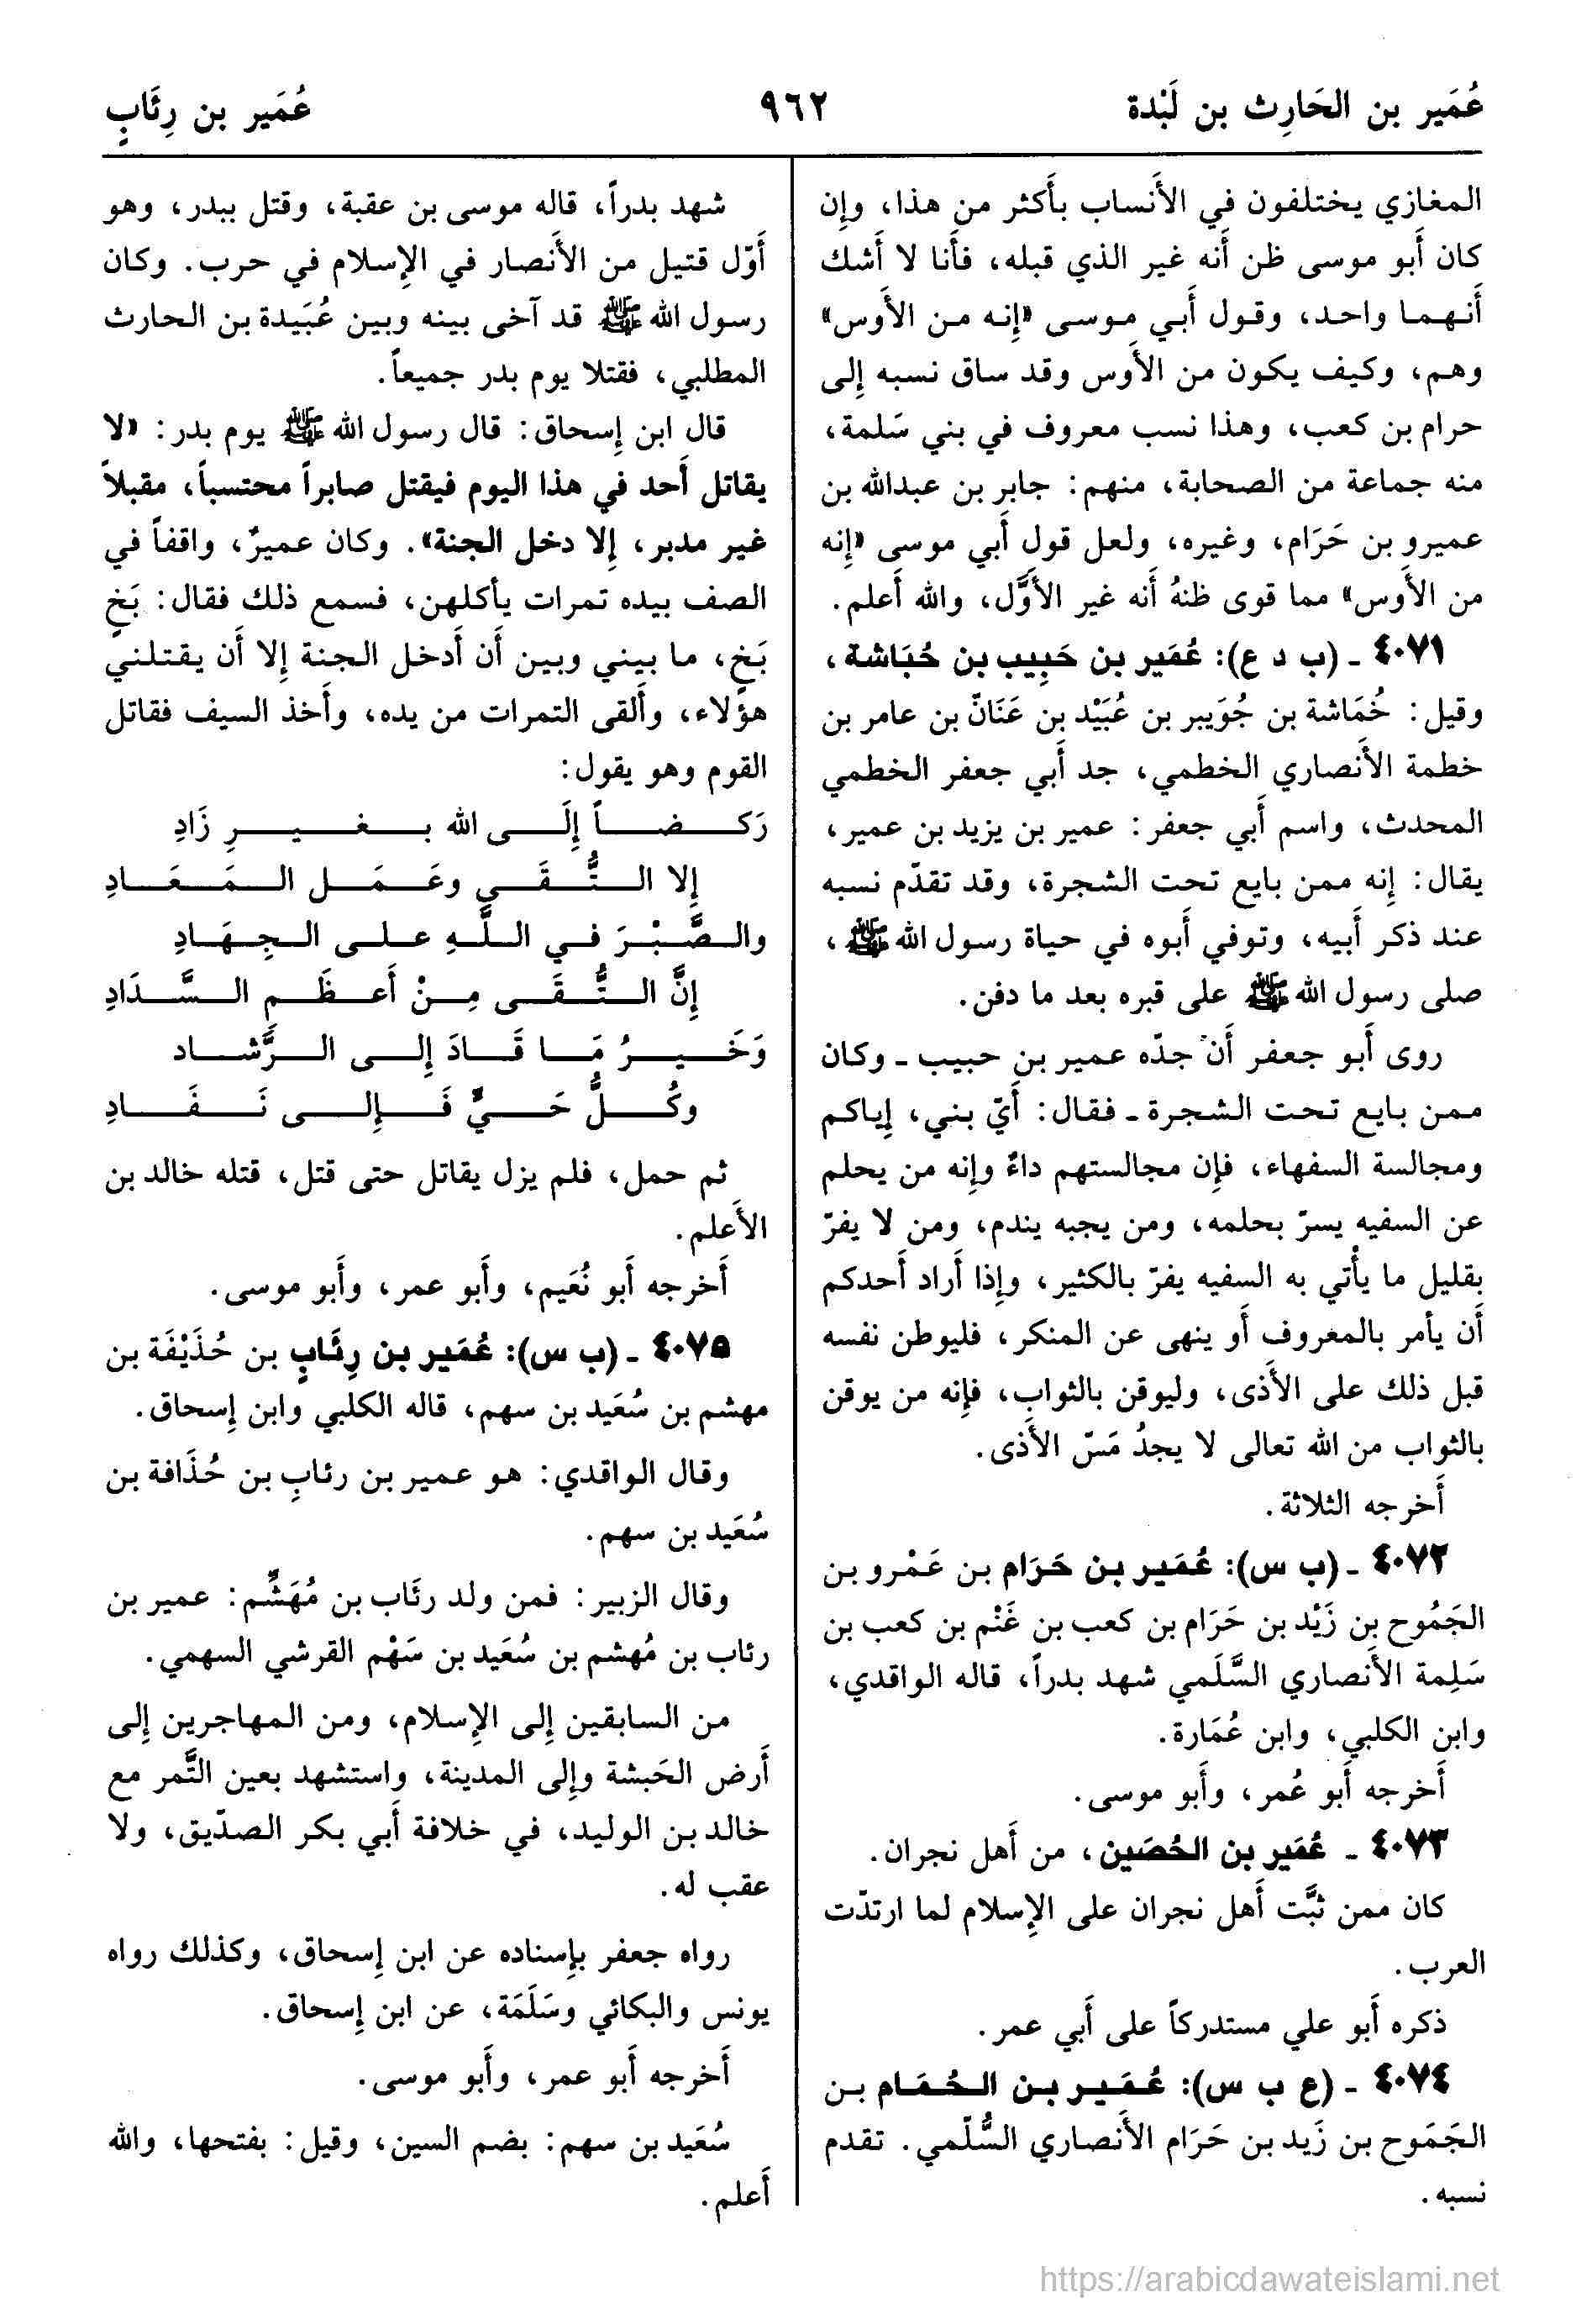 عُمَير بن الحَارِث بن لَبْدة
٩٦٢
عُمَير بن رِئَابٍ
المغازي يختلفون في الأَنساب بأَكثر من هذا، وإِن
كان أَبو موسى ظن أَنه غير الذي قبله، فأَنا لا أَشك
أَنهما واحد، وقول أَبي موسى «إِنه من الأَوس»
وهم، وكيف يكون من الأَوس وقد ساق نسبه إِلى
حرام بن كعب، وهذا نسب معروف في بني سَلمة،
منه جماعة من الصحابة، منهم: جابر بن عبدالله بن
عميرو بن حَرَام، وغيره، ولعل قول أَبي موسى «إِنه
من الأَوس» مما قوى ظنهُ أَنه غير الأَوَّل، والله أَعلم.
٤٠٧١ ـ (ب د ع): عُمَير بن حَبِيب بن حُبَاشة،
وقيل: خُمَاشة بن جُوَيبر بن عُبَيْد بن عَنَانّ بن عامر بن
خطمة الأَنصاري الخطمي، جد أَبي جعفر الخطمي
المحدث، واسم أَبي جعفر: عمير بن يزيد بن عمير،
يقال: إِنه ممن بايع تحت الشجرة، وقد تقدّم نسبه
عند ذكر أَبيه، وتوفي أَبوه في حياة رسول الله ﷺ،
صلى رسول الله ﷺ على قبره بعد ما دفن.
روى أَبو جعفر أَن جدّه عمير بن حبيب ـ وكان
ممن بايع تحت الشجرة ـ فقال: أَيّ بني، إِياكم
ومجالسة السفهاء، فإِن مجالستهم داءٌ وإِنه من يحلم
عن السفيه يسرّ بحلمه، ومن يجبه يندم، ومن لا يفرّ
بقليل ما يأْتي به السفيه يفرّ بالكثير، وإِذا أَراد أَحدكم
أَن يأمر بالمعروف أَو ينهى عن المنكر، فليوطن نفسه
قبل ذلك على الأَذى، وليوقن بالثواب، فإِنه من يوقن
بالثواب من الله تعالى لا يجدُ مَسّ الأَذى.
أَخرجه الثلاثة.
٤٠٧٢ ـ (ب س): عُمَير بن حَرَام بن عَمْرو بن
الجَمُوح بن زَيْد بن حَرَام بن كعب بن غَنْم بن كعب بن
سَلِمة الأَنصاري السَّلَمي شهد بدراً، قاله الواقدي،
وابن الكلبي، وابن عُمَارة.
أَخرجه أَبو عُمر، وأَبو موسى.
٤٠٧٣ ـ عُمَير بن الحُصَين، من أَهل نجران.
كان ممن ثبَّت أَهل نجران على الإِسلام لما ارتدّت
العرب.
ذكره أَبو علي مستدركاً على أَبي عمر.
٤٠٧٤ ـ (ع ب س): عُمَير بن الحُمَام بن
الجَمَوح بن زَيد بن حَرَام الأَنصاري السُّلّمي. تقدم
نسبه.
شهد بدراً، قاله موسى بن عقبة، وقتل ببدر، وهو
أَوّل قتيل من الأَنصار في الإِسلام في حرب. وكان
رسول الله ﷺ قد آخى بينه وبين عُبَيدة بن الحارث
المطلبي، فقتلا يوم بدر جميعاً.
قال ابن إِسحاق: قال رسول الله ﷺ يوم بدر: «لا
يقاتل أَحد في هذا اليوم فيقتل صابراً محتسباً، مقبلاً
غير مدبر، إِلا دخل الجنة». وكان عميرٌ، واقفاً في
الصف بيده تمرات يأكلهن، فسمع ذلك فقال: بَخٍ
بَخٍ، ما بيني وبين أَن أَدخل الجنة إِلا أَن يقتلني
هؤلاء، وأَلقى التمرات من يده، وأَخذ السيف فقاتل
القوم وهو يقول:
رَكضاً إِلَى الله بغيرِ زَادِ
إِلا التُّقَى وعَمَل المَعَادِ
والصَّبْرَ في اللَّهِ على الجِهَادِ
إِنَّ التُّقَى مِنْ أَعظَمِ السَّدَادِ
وَخَيرُ مَا قَادَ إِلى الرَّشاد
وكُلُّ حَيٍّ فَإِلى نَفَادِ
ثم حمل، فلم يزل يقاتل حتى قتل، قتله خالد بن
الأَعلم.
أَخرجه أَبو نُعَيم، وأَبو عمر، وأَبو موسى.
٤٠٧٥ ـ (ب س): عُمَير بن رِئَابٍ بن حُذَيْفَة بن
مهشم بن سُعَيد بن سهم، قاله الكلبي وابن إِسحاق.
وقال الواقدي: هو عمير بن رئابِ بن حُذَافة بن
سُعَيد بن سهم.
وقال الزبير: فمن ولد رئَاب بن مُهَشِّم: عمير بن
رئاب بن مُهشم بن سُعَيد بن سَهْم القرشي السهمي.
من السابقين إِلى الإِسلام، ومن المهاجرين إِلى
أَرض الحَبشة وإِلى المدينة، واستشهد بعين التَّمر مع
خالد بن الوليد، في خلافة أَبي بكر الصدّيق، ولا
عقب له.
رواه جعفر بإِسناده عن ابن إِسحاق، وكذلك رواه
يونس والبكائي وسَلَمَة، عن ابن إِسحاق.
أَخرجه أَبو عمر، وأَبو موسى.
سُعَيد بن سهم: بضم السين، وقيل: بفتحها، والله
أَعلم.
https://arabicdawateislami.net